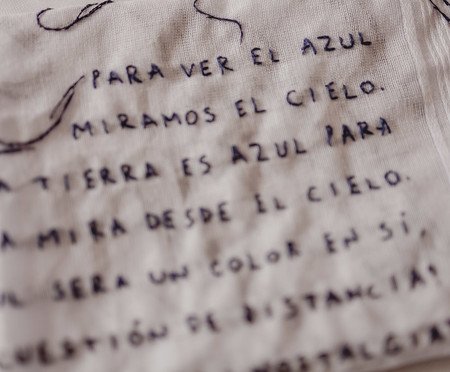 PARA VER EL AZUL
MIRAMOS EL CIELO.
A TIERRA ES AZUL PARA
A MIRA DESDE EL CIELO.
UL SERA UN COLOR EN SÍ,
CUESTIÓN DE DISTANCIA
NOSTALGIA